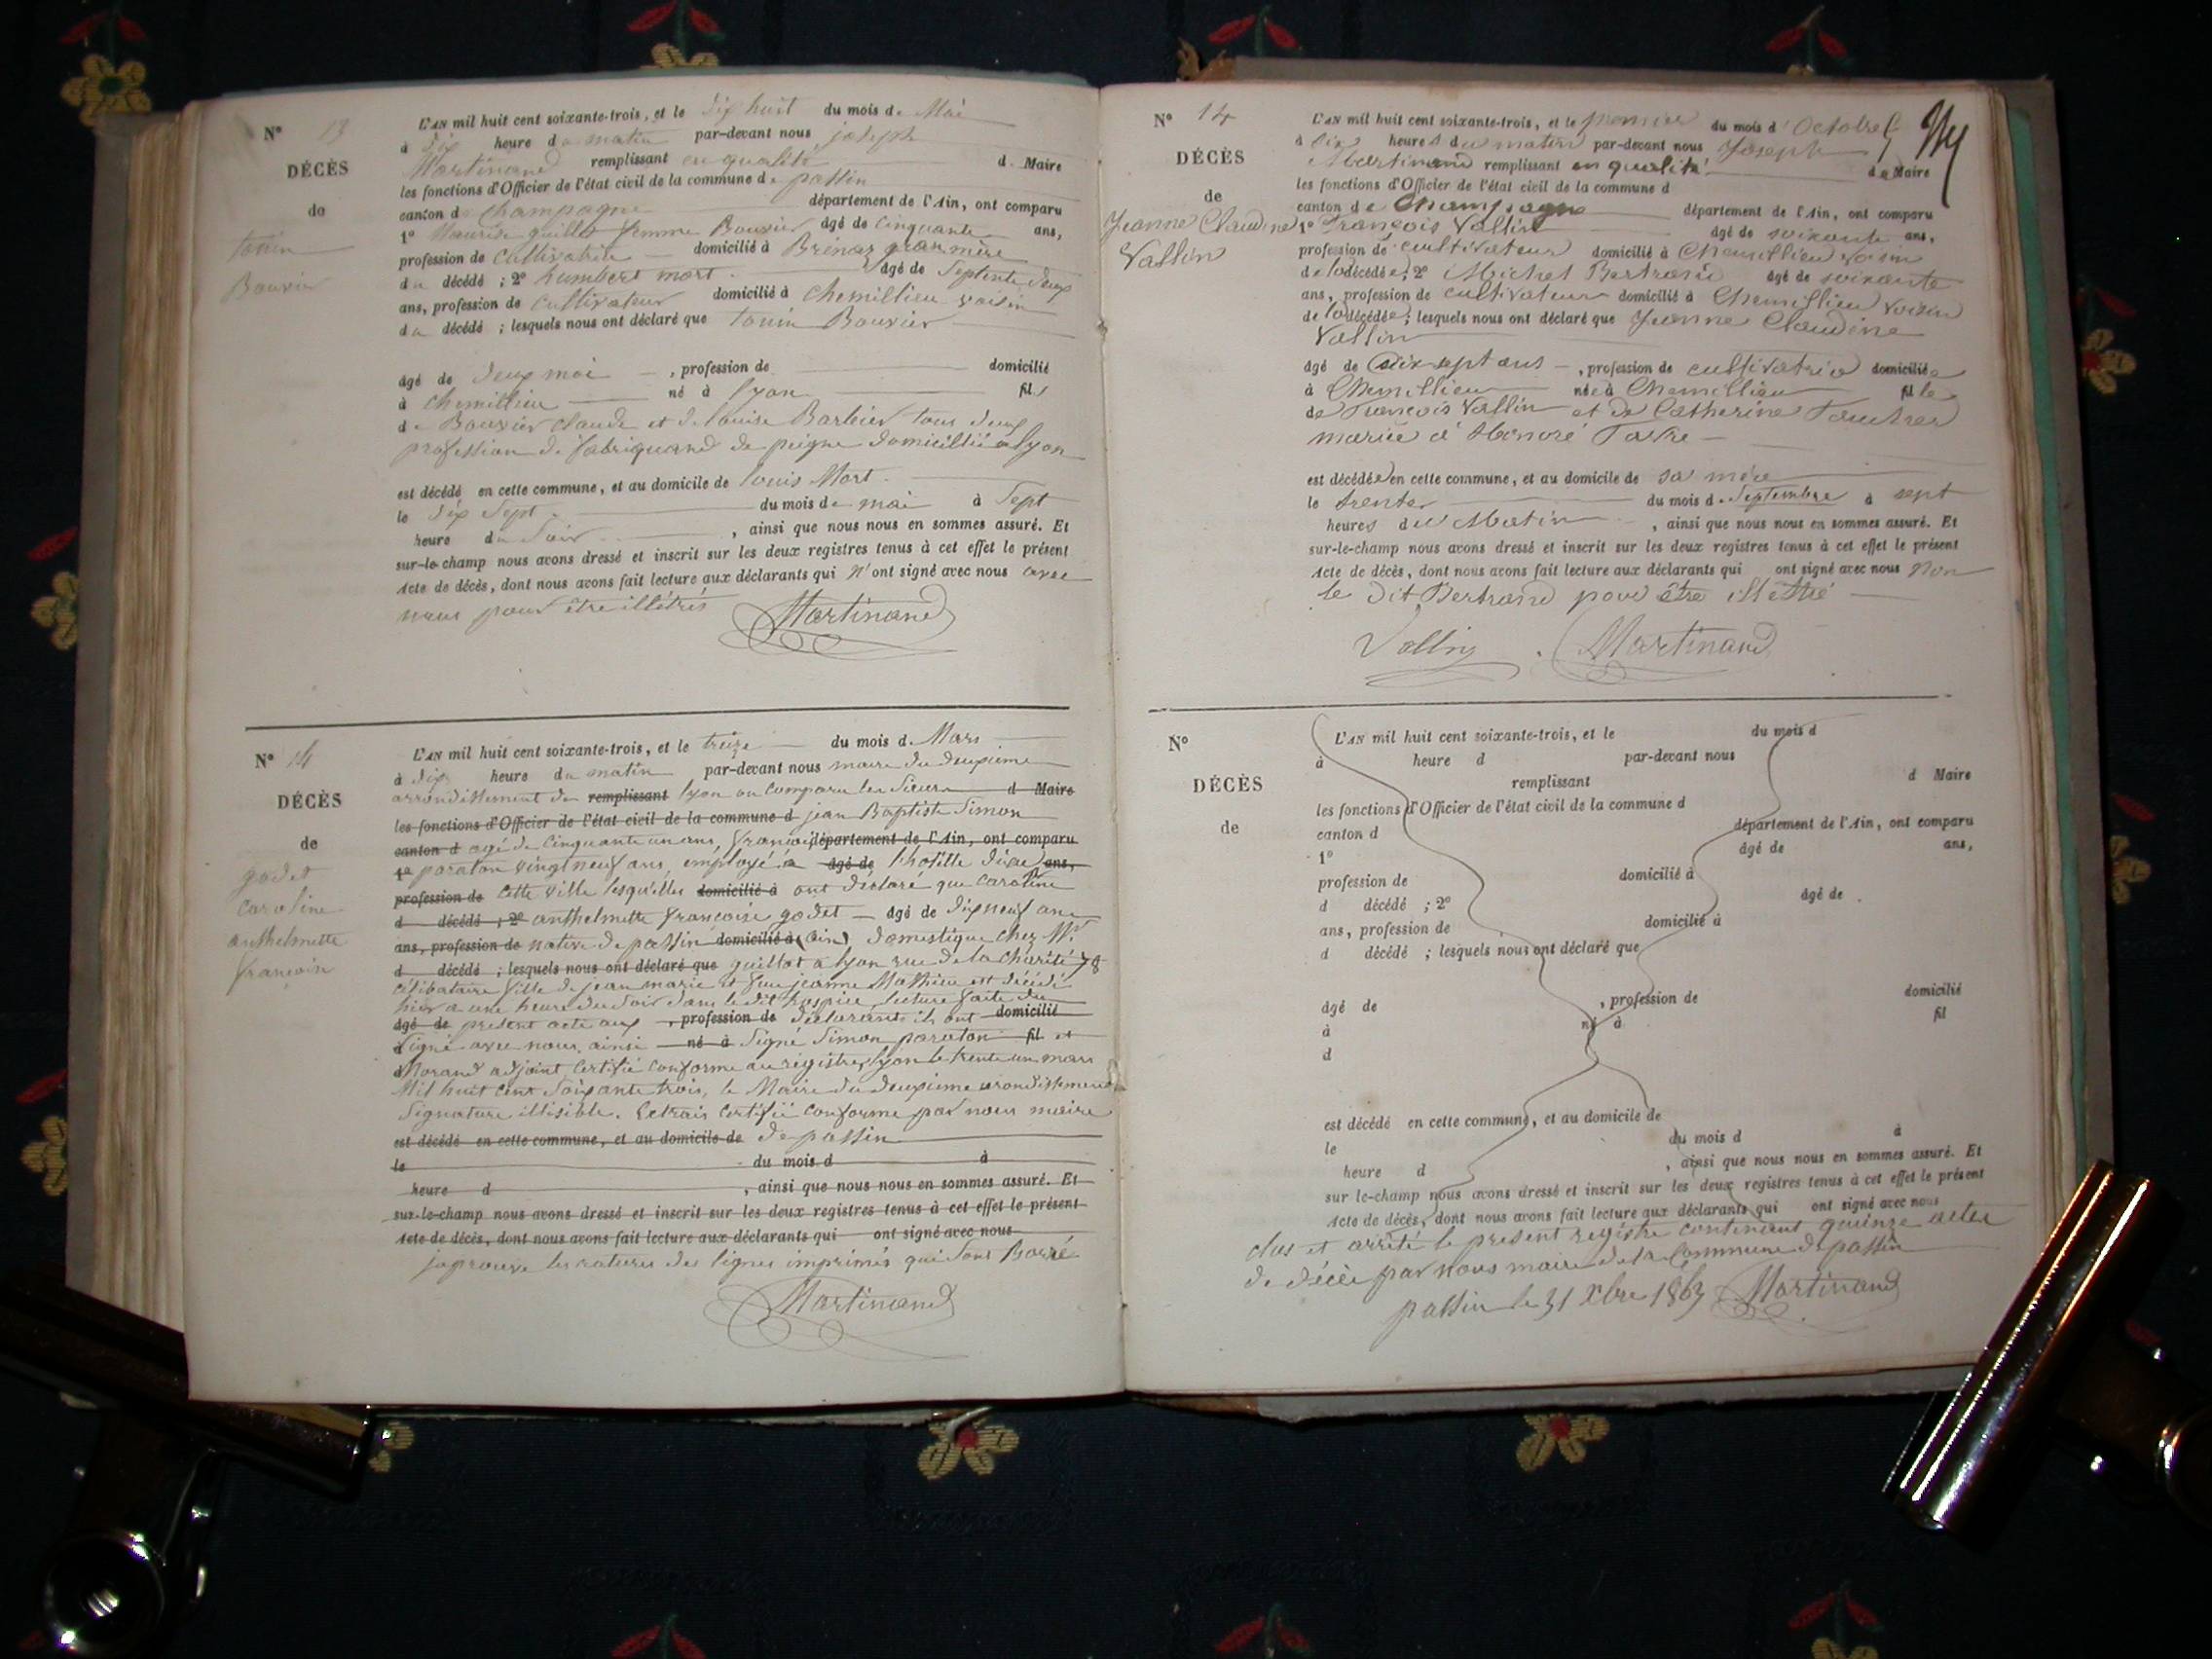 N° 13
DÉCÈS
de
tonin
Bouvier
L'AN mil huit cent soixante-trois, et le dix huit du mois de Mai
à dix heure du matin par-devant nous joseph
Martinand remplissant en qualité d Maire
les fonctions d'Officier de l'état civil de la commune de passin
canton de Champagne département de l'Ain, ont comparu
1° guillot femme Bouvier âgé de cinquante ans,
profession de cultivatrice domicilié à Brénaz gran mère
du décédé ; 2° humbert mort âgé de septente deux
ans, profession de cultivateur domicilié à chemillieu voisin
du décédé ; lesquels nous ont déclaré que tonin Bouvier
âgé de deux moi , profession de domicilié
à chemillieu né à lyon fils
de Bouvier claude et de louise Barbier tous deux
profession de fabriquand de peigne domicillié a lyon
est décédé en cette commune, et au domicile de louis Mort
le dix sept du mois de mai à sept
heure du soir , ainsi que nous nous en sommes assuré. Et
sur-le-champ nous avons dressé et inscrit sur les deux registres tenus à cet effet le présent
Acte de décès, dont nous avons fait lecture aux déclarants qui n'ont signé avec nous avec
nous pour être illétrés Martinand
N° 14
DÉCÈS
de
godet
caroline
anthelmette
françoise
L'AN mil huit cent soixante-trois, et le treize du mois de Mars
à dix heure du matin par-devant nous maire du deuxième
arrondissement de remplissant lyon on comparu les sieurs d Maire
les fonctions d'Officier de l'état civil de la commune d jean Baptiste Simon
canton d agé de cinquante un ans, françois département de l'Ain, ont comparu
1° paraton vingt neuf ans, employé a âgé de l'hotelle dieu ans,
profession de cette ville lesquelles domicilié à ont déclaré que caroline
d décédé ; 2° anthelmette françoise godet âgé de dix neuf ans
ans, profession de native de passin domicilié à (ain), domestique chez Mr
d décédé ; lesquels nous ont déclaré que guillot a lyon rue de la charité 78
célibataire fille de jean marie et feue jeanne Mathieu est décédé
hier a une heure du soir dans le dit hospice lecture faite du
âgé de présent acte aux , profession de déclarants ils ont domicilié
à signé avec nous ainsi né à signé Simon paraton fil et
d Morand adjoint certifié conforme au régistre, lyon le trente un mars
Mil huit cent soixante trois, le Maire du deuxieme arondissement
signature illisible. Extrais certifié conforme par nous maire
est décédé en cette commune, et au domicile de de passin
le du mois d à
heure d , ainsi que nous nous en sommes assuré. Et
sur-le-champ nous avons dressé et inscrit sur les deux registres tenus à cet effet le présent
Acte de décès, dont nous avons fait lecture aux déclarants qui ont signé avec nous
japrouve les ratures des lignes imprimés qui sont Barré
Martinand
N° 14
DÉCÈS
de
Jeanne Claudine
Vallin
L'AN mil huit cent soixante-trois, et le premier du mois d'Octobre
à dix heures du matin par-devant nous Joseph
Martinand remplissant en qualité de Maire
les fonctions d'Officier de l'état civil de la commune d
canton de Champagne département de l'Ain, ont comparu
1° François Vallin âgé de soixante ans,
profession de cultivateur domicilié à Chemillieu voisin
de la décédée ; 2° Michel Bertrand âgé de soixante
ans, profession de cultivateur domicilié à Chemillieu voisin
de la décédée ; lesquels nous ont déclaré que Jeanne Claudine
Vallin
âgé de dix-sept ans , profession de cultivatrice domiciliée
à Chemillieu née à Chemillieu fille
de François Vallin et de Catherine
mariée à Honoré
est décédée en cette commune, et au domicile de sa mère
le trente du mois de Septembre à sept
heures du Matin , ainsi que nous nous en sommes assuré. Et
sur-le-champ nous avons dressé et inscrit sur les deux registres tenus à cet effet le présent
Acte de décès, dont nous avons fait lecture aux déclarants qui ont signé avec nous non
le dit Bertrand pour être illétré
Vallin Martinand
N°
DÉCÈS
de
L'AN mil huit cent soixante-trois, et le du mois d
à heure d par-devant nous
remplissant d Maire
les fonctions d'Officier de l'état civil de la commune d
canton d département de l'Ain, ont comparu
1° âgé de ans,
profession de domicilié à
d décédé ; 2° âgé de
ans, profession de domicilié à
d décédé ; lesquels nous ont déclaré que
âgé de , profession de domicilié
à né à fil
d
est décédé en cette commune, et au domicile de
le du mois d à
heure d , ainsi que nous nous en sommes assuré. Et
sur le-champ nous avons dressé et inscrit sur les deux registres tenus à cet effet le présent
Acte de décès, dont nous avons fait lecture aux déclarants qui ont signé avec nous
clos et arrêté le présent régistre contenant quinze actes
de décès par nous maire de la Commune de passin
passin le 31 Xbre 1863 Martinand